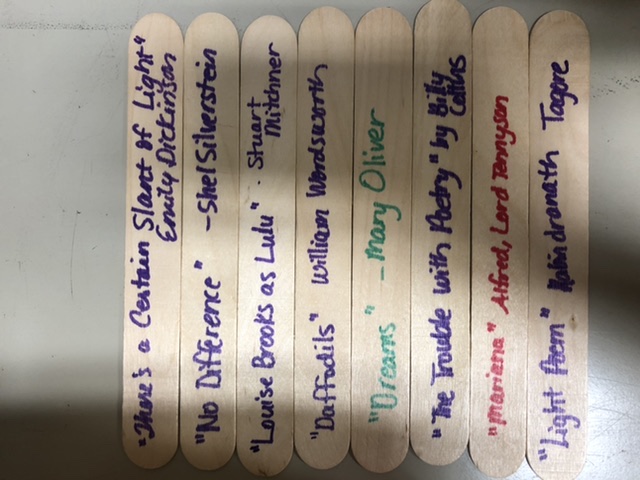 "There's a Certain Slant of Light"
Emily Dickinson
"No Difference" - Shel Silverstein
"Louise Brooks as Lulu" - Stuart
Mitchner
"Daffodils" William Wordsworth
"Dreams" - Mary Oliver
"The Trouble with Poetry" by Billy
Collins
"Mariana" Alfred, Lord Tennyson
"Light Poem" Rabindranath Tagore